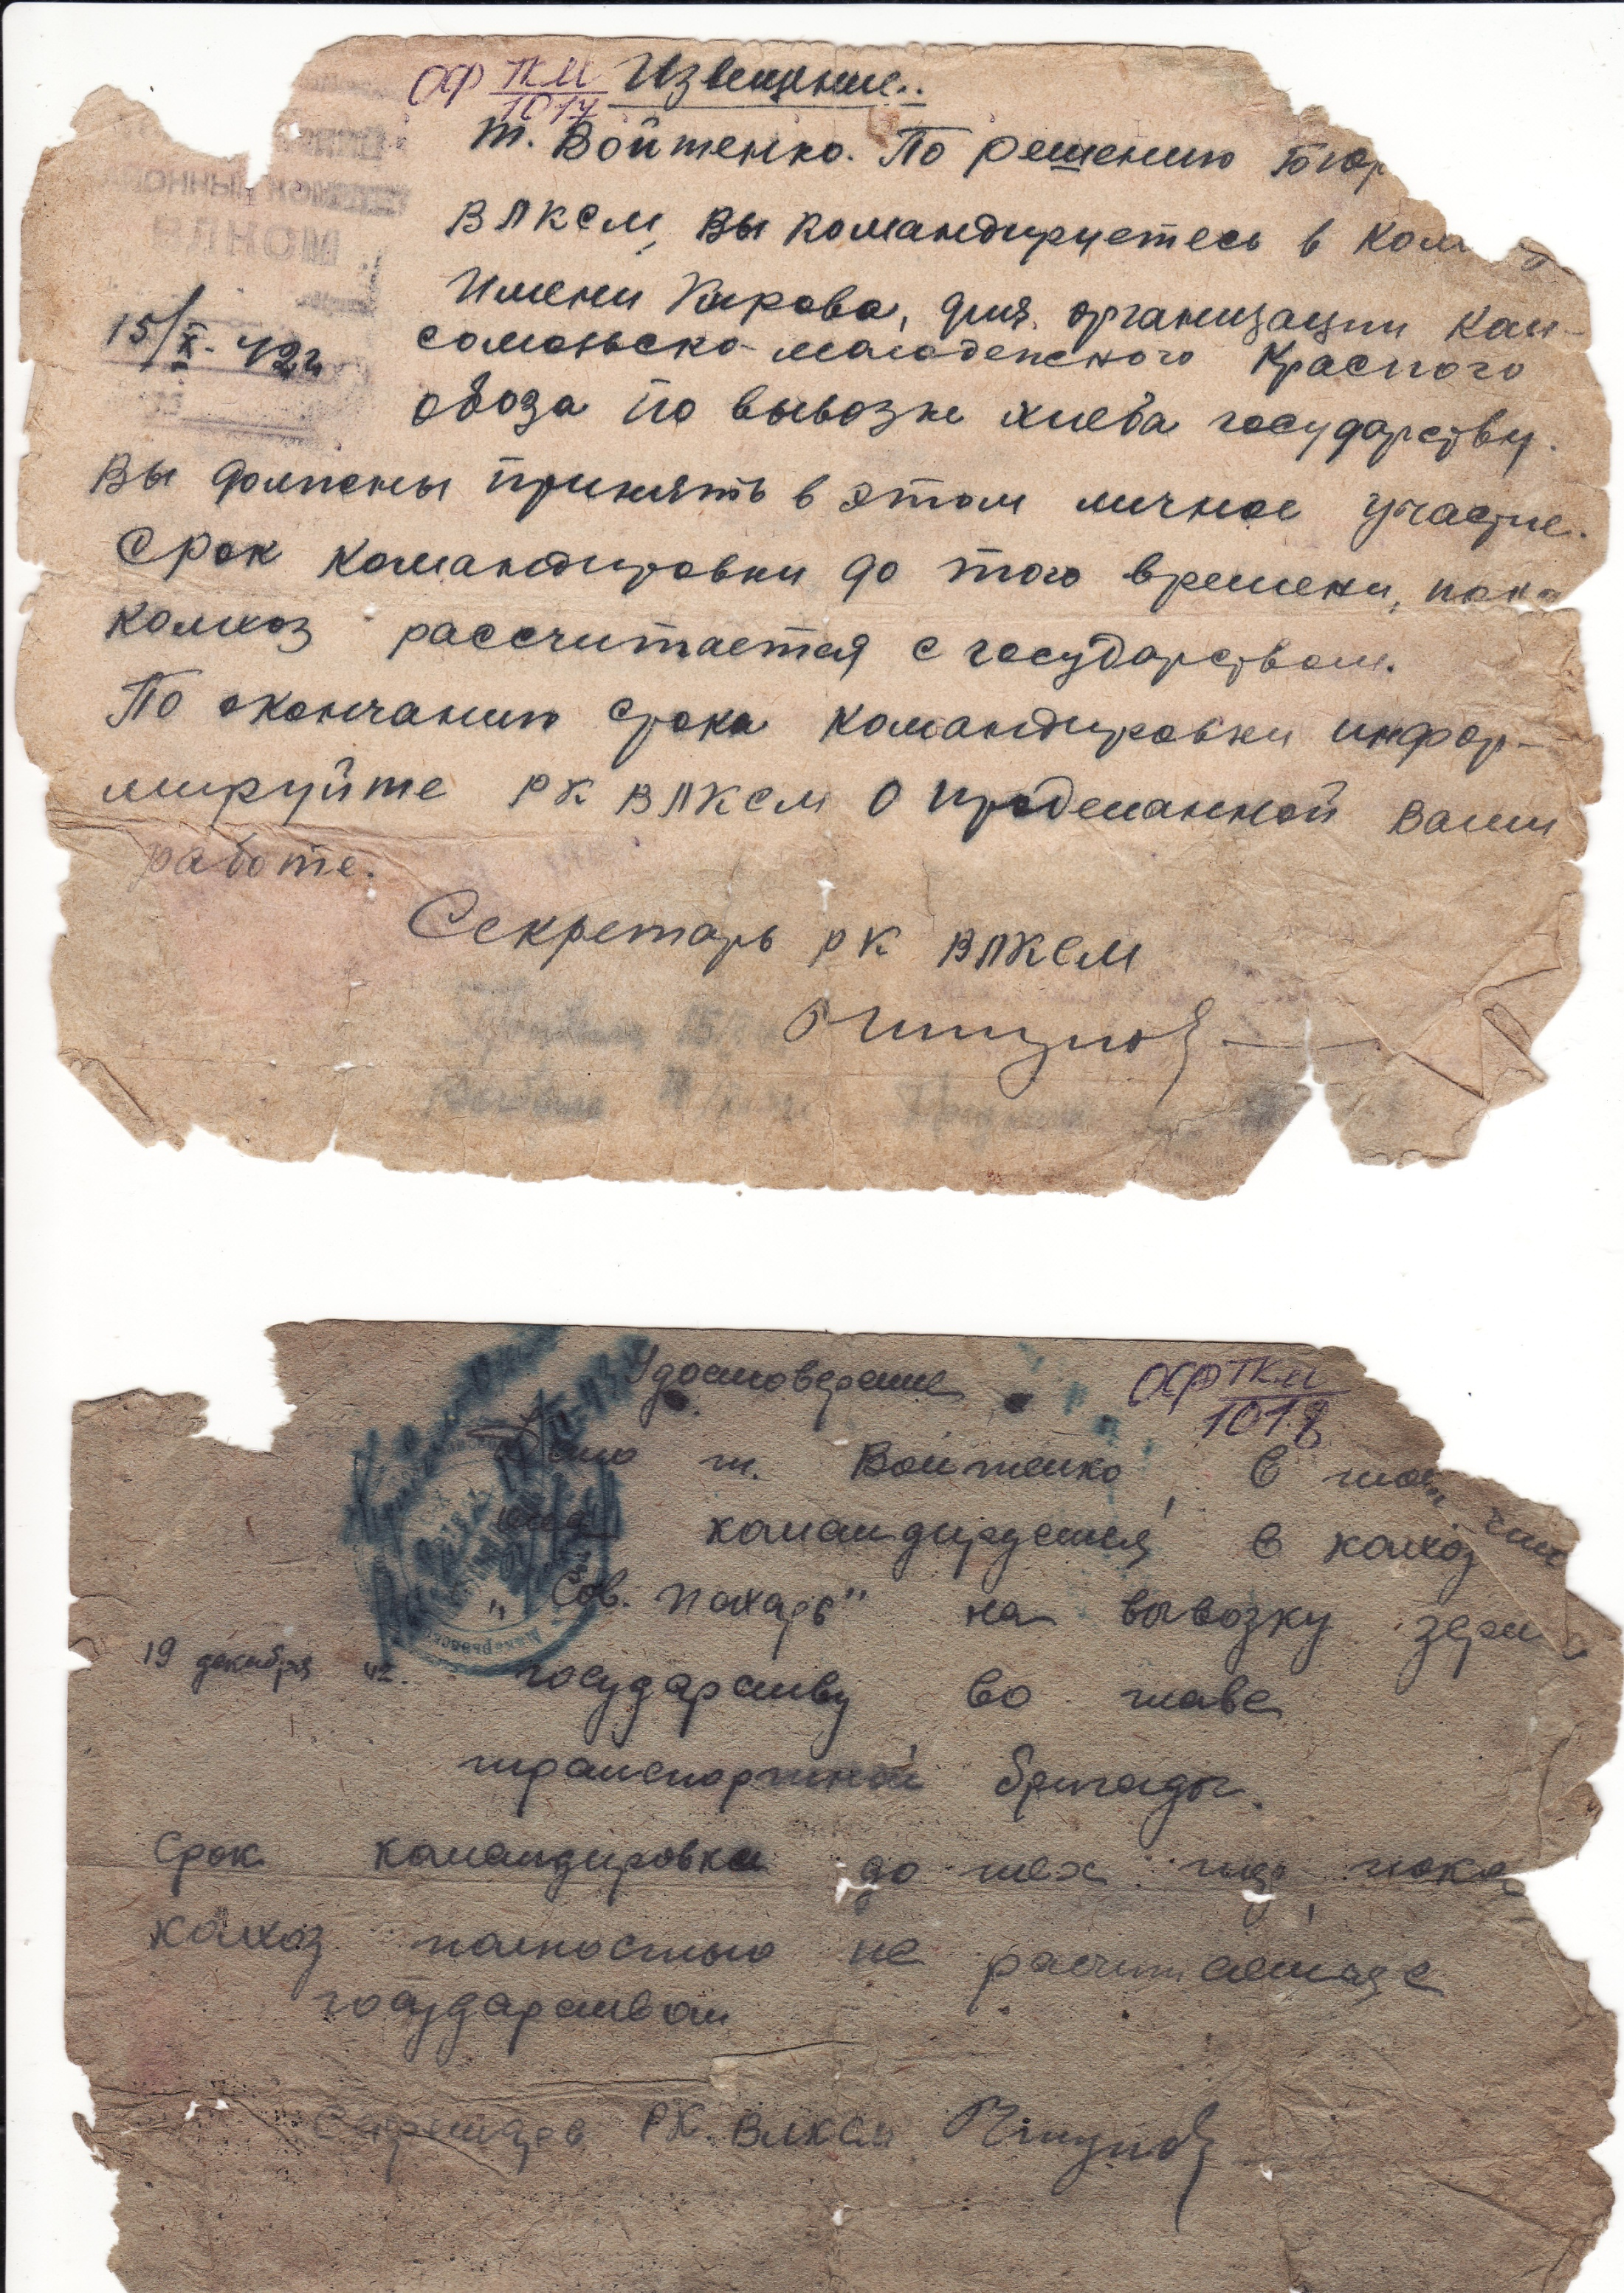 ОФ ТКМ/1017 Извещение..
т. Войтенко. По решению Бюр
ВЛКСМ, Вы командируетесь в Кол
Имени Кирова, для организации Ком-
сомольско-молодежного Красного
обоза по вывозке хлеба государству.
15/X-42г
Вы должны принять в этом личное участие.
Срок командировки до того времени, пока
колхоз рассчитается с государством.
По окончанию срока командировки инфор-
мируйте РК ВЛКСМ о проделанной Вами
работе.
Секретарь РК ВЛКСМ
Удостоверение
ОФ ТКМ/1018
Дано т. Войтенко, в том что
она командируется в колхоз
"Сов. Пахарь" на вывозку зерн
19 декабря 42. государству во главе
транспортной бригады.
Срок командировки до тех пор пока
колхоз полностью не расчитается с
государством
РК. ВЛКСМ